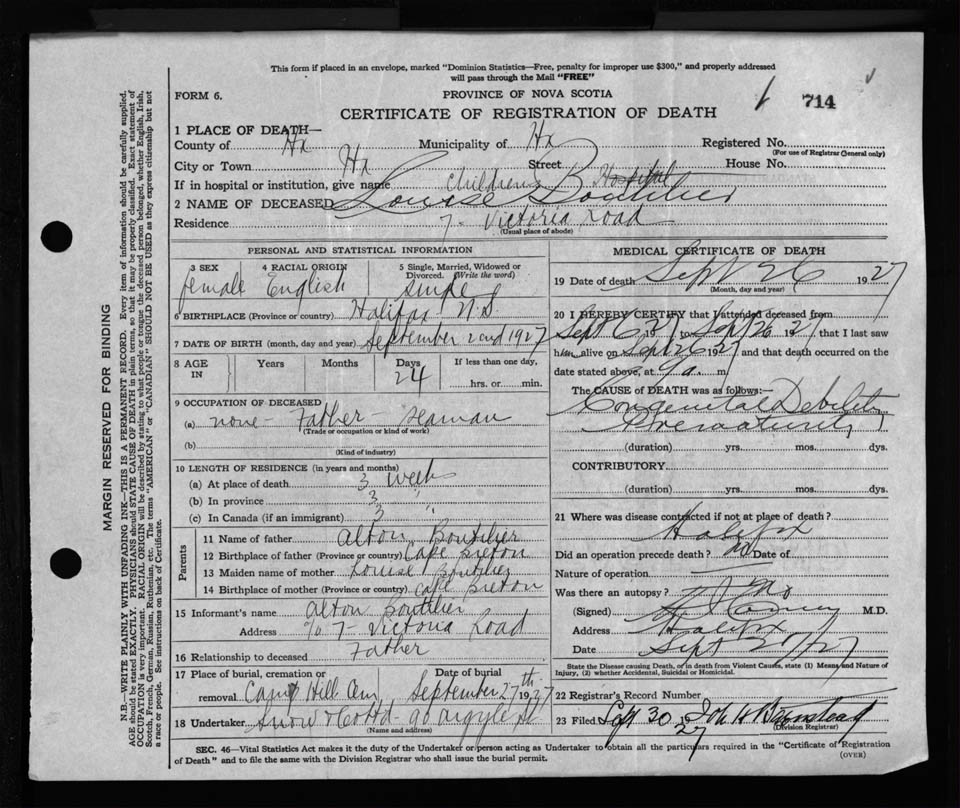 This form if placed in an envelope, marked "Dominion Statistics—Free, penalty for improper use $300," and properly addressed
will pass through the Mail "FREE"
FORM 6.
PROVINCE OF NOVA SCOTIA
1 714
CERTIFICATE OF REGISTRATION OF DEATH
1 PLACE OF DEATH—
County of Hx Municipality of Hx Registered No.
(For use of Registrar General only)
City or Town Hx Street House No.
If in hospital or institution, give name Childrens Hospital
2 NAME OF DECEASED Louise Boutilier
Residence 7- Victoria Road
(Usual place of abode)
PERSONAL AND STATISTICAL INFORMATION
3 SEX 4 RACIAL ORIGIN 5 Single, Married, Widowed or Divorced. (Write the word)
female English single
6 BIRTHPLACE (Province or country) Halifax N.S.
7 DATE OF BIRTH (month, day and year) September 2nd 1927
8 AGE IN Years Months Days If less than one day,
24 hrs. or min.
9 OCCUPATION OF DECEASED
(a) none - Father - seaman
(Trade or occupation or kind of work)
(b)
(Kind of industry)
10 LENGTH OF RESIDENCE (in years and months)
(a) At place of death 3 week
(b) In province 3 "
(c) In Canada (if an immigrant) 3 "
Parents
11 Name of father Alton Boutilier
12 Birthplace of father (Province or country) Cape Breton
13 Maiden name of mother Louise Boutilier
14 Birthplace of mother (Province or country) Cape Breton
15 Informant's name Alton Boutilier
Address % 7- Victoria Road
16 Relationship to deceased Father
17 Place of burial, cremation or removal Camp Hill Cem Date of burial September 27th 1927
18 Undertaker Snow & Co Ltd - 90 Argyle St
(Name and address)
MEDICAL CERTIFICATE OF DEATH
19 Date of death Sept 26 1927
(Month, day and year)
20 I HEREBY CERTIFY that I attended deceased from
Sept 6 1927, to Sept 26 1927, that I last saw
her alive on Sept 26 1927 and that death occurred on the
date stated above, at 9 a. m
The CAUSE OF DEATH was as follows:—
Congenital Debility
Prematurity
(duration) yrs. mos. dys.
CONTRIBUTORY
(duration) yrs. mos. dys.
21 Where was disease contracted if not at place of death?
Halifax
Did an operation precede death? no Date of
Nature of operation
Was there an autopsy? no
(Signed) M.D.
Address Halifax
Date Sept 27/27
State the Disease causing Death, or in death from Violent Causes, state (1) Means and Nature of
Injury, (2) whether Accidental, Suicidal or Homicidal.
22 Registrar's Record Number
23 Filed Sept 30 1927 John H Barnstead
(Division Registrar)
SEC. 46—Vital Statistics Act makes it the duty of the Undertaker or person acting as Undertaker to obtain all the particulars required in the "Certificate of Registration
of Death" and to file the same with the Division Registrar who shall issue the burial permit.
(OVER)
MARGIN RESERVED FOR BINDING
N.B.—WRITE PLAINLY WITH UNFADING INK—THIS IS A PERMANENT RECORD. Every item of information should be carefully supplied.
AGE should be stated EXACTLY. PHYSICIANS should STATE CAUSE OF DEATH in plain terms, so that it may be properly classified. Exact statement of
OCCUPATION is very important. RACIAL ORIGIN will be described by stating to what people or tongue the deceased person belonged, whether English, Irish,
Scotch, French, German, Russian, Ruthenian, etc. The terms "AMERICAN" or "CANADIAN" SHOULD NOT BE USED as they express citizenship but not
a race or people. See instructions on back of Certificate.